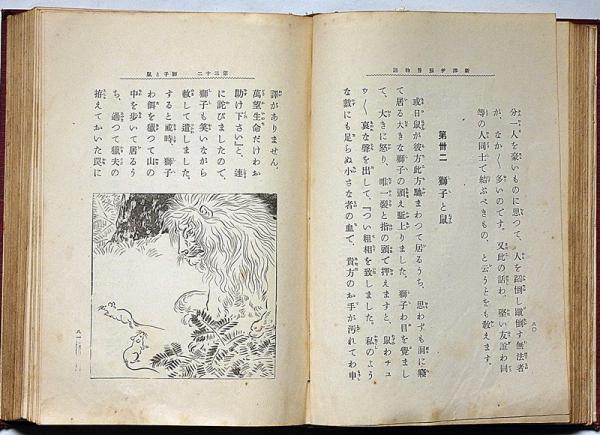 新譯伊蘇普物語
八〇
分一人を豪いものに思つて、人を踏倒し蹴倒す無法者
が、なか〳〵多いのです。又此の話わ、堅い友誼わ同
等の人同士で結ぶべきもの、と云うことをも教えます。
第卅二 獅子と鼠
或日鼠が彼方此方馳まわつて居るうち、思わずも洞に寢
て居る大きな獅子の頭え駈上りました。獅子わ目を覺まし
て、大きに怒り、唯一裂と指の頭で押えますと、鼠わチユ
ウ〳〵哀な聲を出して、『つい粗相を致しました。私のよう
な數にも足らぬ小さな者の血で、貴方のお手が汚れてわ申
第三十二 獅子と鼠
譯がありません、
萬望生命だけわお
助け下さい』と、連
に詫びましたので、
獅子も笑いながら
赦して遣しました。
すると或時、獅子
わ餌を獵つて山の
中を歩いて居るう
ち、過つて獵夫の
拵えておいた罠に
八一